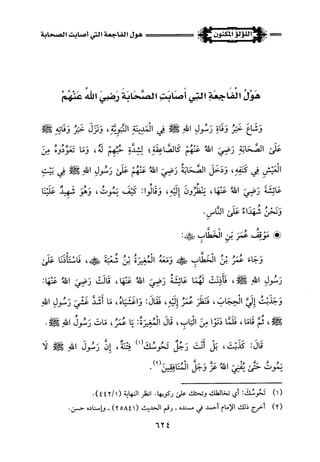 اللؤلؤ المكنون
هول الفاجعة التي أصابت الصحابة
هَوْلُ الْفَاجِعَةِ التِي أَصَابَتِ الصَّحَابَةَ رَضِيَ اللهُ عَنْهُمْ
وَشَاعَ خَبَرُ وَفَاةِ رَسُولِ اللهِ ﷺ فِي الْمَدِينَةِ النَّبَوِيَّةِ، وَنَزَلَ خَبَرُ وَفَاتِهِ ﷺ
عَلَى الصَّحَابَةِ رَضِيَ اللهُ عَنْهُمْ كَالصَّاعِقَةِ، لِشِدَّةِ حُبِّهِمْ لَهُ، وَمَا تَعَوَّدُوهُ مِنَ
الْعَيْشِ فِي كَنَفِهِ، وَدَخَلَ الصَّحَابَةُ رَضِيَ اللهُ عَنْهُمْ عَلَى رَسُولِ اللهِ ﷺ فِي بَيْتِ
عَائِشَةَ رَضِيَ اللهُ عَنْهَا، يَنْظُرُونَ إِلَيْهِ، وَقَالُوا: كَيْفَ يَمُوتُ، وَهُوَ شَهِيدٌ عَلَيْنَا
وَنَحْنُ شُهَدَاءُ عَلَى النَّاسِ.
مَوْقِفُ عُمَرَ بْنِ الْخَطَّابِ ﷺ:
وَجَاءَ عُمَرُ بْنُ الْخَطَّابِ وَمَعَهُ الْمُغِيرَةُ بْنُ شُعْبَةَ، فَاسْتَأْذَنَا عَلَى
رَسُولِ اللهِ ﷺ، فَأَذِنَتْ لَهُمَا عَائِشَةُ رَضِيَ اللهُ عَنْهَا، قَالَتْ رَضِيَ اللهُ عَنْهَا:
وَجَذَبْتُ إِلَيَّ الْحِجَابَ، فَنَظَرَ عُمَرُ إِلَيْهِ، فَقَالَ: وَاغَشْيَاهُ، مَا أَشَدَّ غَشْيَ رَسُولِ اللهِ
ﷺ، ثُمَّ قَامَا، فَلَمَّا دَنَوَا مِنَ الْبَابِ، قَالَ الْمُغِيرَةُ: يَا عُمَرُ، مَاتَ رَسُولُ اللهِ ﷺ.
قَالَ: كَذَبْتَ، بَلْ أَنْتَ رَجُلٌ تَحُوسُكَ(١) فِتْنَةٌ، إِنَّ رَسُولَ اللهِ ﷺ لَا
يَمُوتُ حَتَّى يُفْنِيَ اللهُ عَزَّ وَجَلَّ الْمُنَافِقِينَ(٢).
(١) تَحُوسُكَ: أي تخالطك وتحثك على ركوبها. انظر النهاية (٤٤٢/١).
(٢) أخرج ذلك الإمام أحمد في مسنده - رقم الحديث (٢٥٨٤١) - وإسناده حسن.
٦٢٤